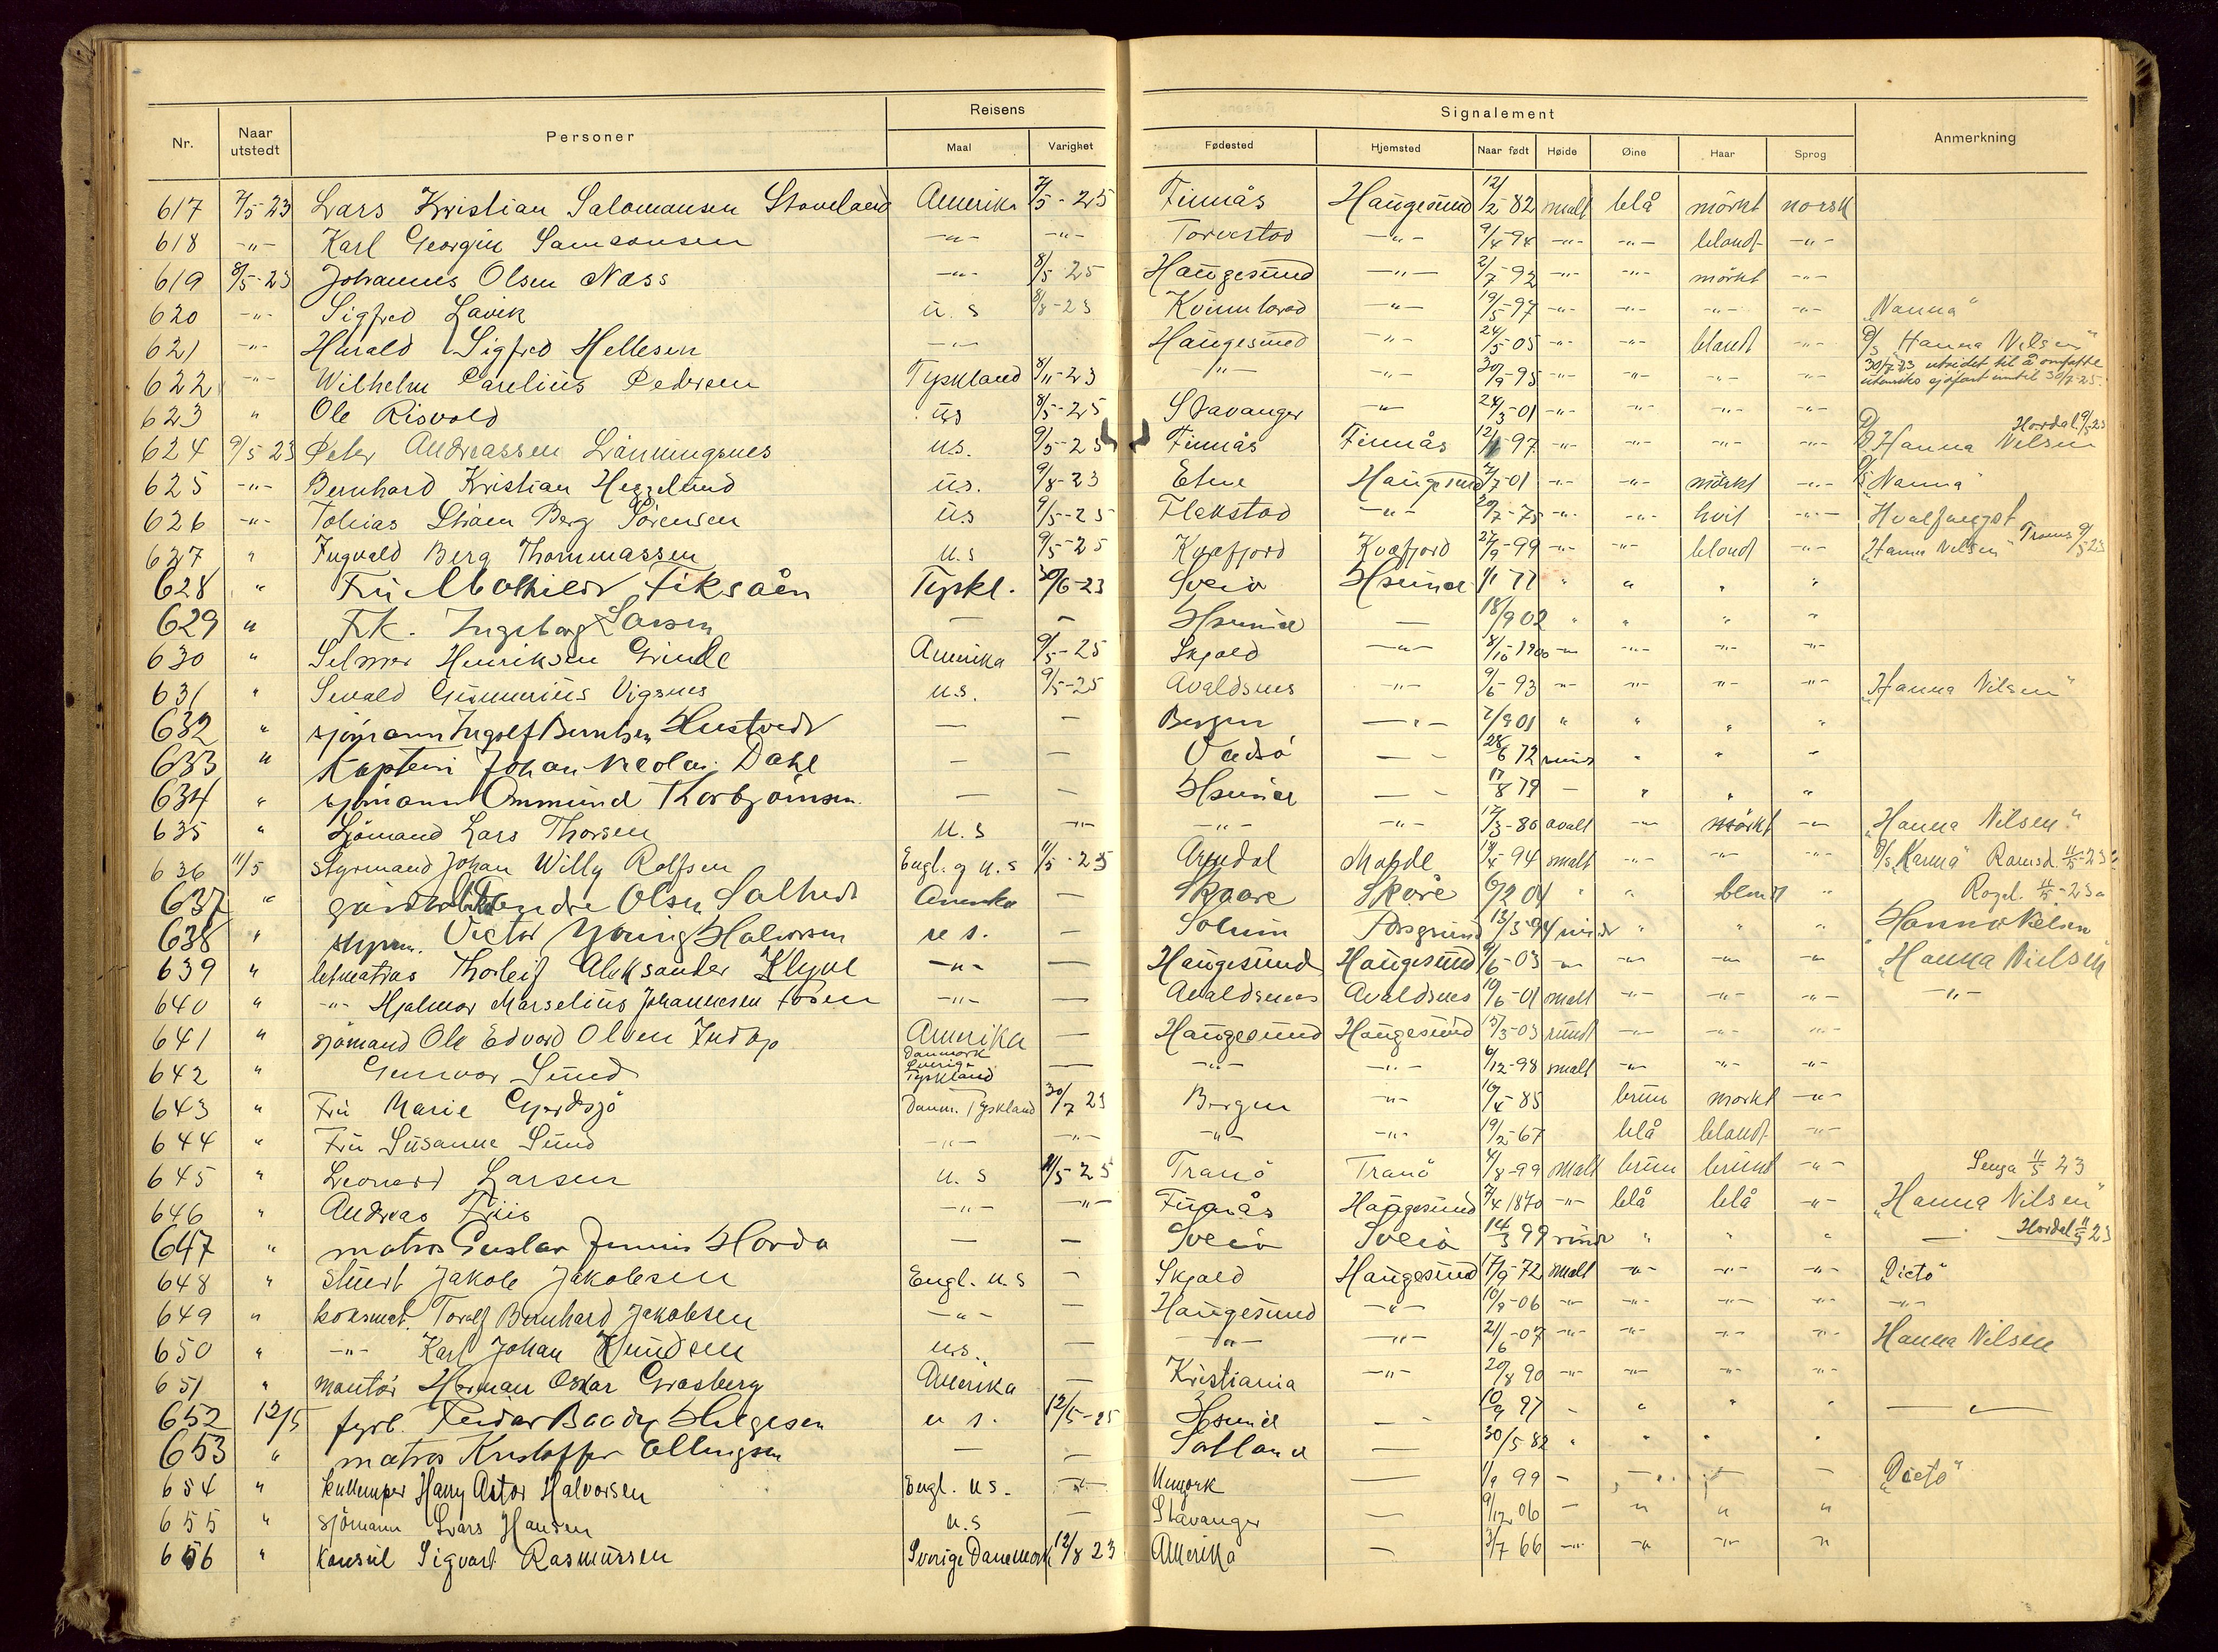 Reisens
Signalement
Nr. Naar utstedt Personer Maal Varighet Fødested Hjemsted Naar født Høide Øine Haar Sprog Anmerkning
617 7/5-23 Lars Kristian Salomonsen Stoveland Amerika 7/5-25 Finnås Haugesund 12/2-82 malt blå mörkt norsk
618 -"- Karl Georgin Samsonsen -"- -"- Torvestad -"- 9/4-94 -"- -"- blondt -"-
619 8/5-23 Johannes Olsen Næss -"- 8/5-25 Haugesund -"- 2/7-92 -"- -"- mörkt -"-
620 -"- Sigfred Lavik u.s 8/8-23 Kvinnherad -"- 19/5-97 -"- -"- -"- -"- "Nanna"
621 -"- Harald Sigfred Hellesen -"- Haugesund -"- 24/5-05 -"- -"- blondt -"- D/S "Hanna Nilsen"
622 -"- Wilhelm Carelius Pedersen Tyskland 8/11-23 -"- -"- 30/9-95 -"- -"- -"- -"- 30/7-23 utvidet til å omfatte
utenriks sjöfart inntil 30/7-25.
623 " Ole Risvold us 8/5-25 Stavanger -"- 24/3-01 -"- -"- -"- -"-
624 9/5 23 Peter Andreassen Lönningsnes u.s. 9/5-25 Finnås Finnås 12/1-97 -"- -"- -"- -"- Hordal. 9/5-23 D/S Hanna Nilsen
625 -"- Bernhard Kristian Heggelund u.s. 9/8-23 Etne Haugesund 2/7-01 -"- -"- mörkt -"- D/S "Nanna"
626 -"- Tobias Ström Berg Sörensen u.s 9/5-25 Flakstad -"- 20/7-75 -"- -"- hvit -"- Hvalfangst
627 " Ingvald Berg Thommassen u.s 9/5-25 Kvæfjord Kvæfjord 27/9-99 -"- -"- blond -"- "Hanna Nilsen" Troms 9/5-23
628 " Fru Mathilde Fiksdön Tyskl. 30/6-23 Sveio Hsund 1/1 77 " " " "
629 " Frk. Ingeborg Larsen — — Hsund — 18/9 02 " " " "
630 " Selmer Henriksen Grinde Amerika 9/5-25 Skjold -"- 8/10-1900 -"- -"- -"- -"-
631 " Sevald Gunnerius Vigsnes u.s. 9/5-25 Avaldsnes -"- 9/6-93 -"- -"- -"- -"- "Hanna Nilsen"
632 " sjömann Ingolf Berntsen Hustvedt — — Bergen -"- 2/9 01 " " " "
633 " Kaptein Johan Nicolai Dahl — — Vadsö — 28/6 72 rund " " "
634 " sjömann Ommund Thorbjörnsen. — — Hsund — 17/8 79 — " " "
635 " Sjömand Lars Thorsen u.s -"- -"- -"- 17/3-80 ovalt -"- mörkt -"- "Hanna Nilsen."
636 11/5 Styrmand Johan Willy Rolfsen Engl. og u.s 11/5-25 Arendal 18/4-94 smalt -"- -"- -"- D/S "Karma"
637 " Olsen Amerika — Skaare Skåre 6/2 04 " " blondt " Rogal. 11/5-23
638 " styrm. Victor Young Halvorsen u s. — Solum Porsgrund 13/3-94 " " " Hanna Nilsen
639 " letmatros Thorleif Aleksander Klyve -"- — Haugesund Haugesund 9/6-03 -"- -"- -"- -"- "Hanna Nielsen"
640 " -"- Hjalmar Marselius Johannesen Fosen -"- — Avaldsnes Avaldsnes 10/6-01 malt -"- -"- -"- -"-
641 " sjömand Ole Edvard Olsen Amerika — Haugesund Haugesund 15/3-03 rundt -"- -"- -"-
642 " Gunvor Sund Danmark Sverige Tyskland — -"- -"- 6/12-98 smalt -"- -"- -"-
643 " Fru Marie Gjerdsjö Danm. Tyskland 30/7 23 Bergen -"- 10/4-85 brun morkt -"-
644 " Fru Susanne Sund -"- -"- -"- -"- 19/2-67 blå blondt -"-
645 " Leonard Larsen u. s 11/5-25 Tranö Tranö 4/8-99 malt brun brunt -"- Senja 11/5 23
646 " Andreas Friis -"- -"- Finnås Haugesund 7/4 1870 -"- blå blå -"- "Hanna Nilsen"
647 " matros Gustav Horda — — Sveio Sveio 14/3 99 rund " " " — Hordal. 11/5 23
648 " Stuert Jakob Jakobsen Engl. u.s — Skjold Haugesund 17/9-72 smalt -"- -"- -"- "Dicto"
649 " koksmat. Toralf Bernhard Jakobsen -"- — Haugesund -"- 10/9-06 -"- -"- -"- -"- -"-
650 " -"- Karl Johan Knudsen u.s. — -"- -"- 21/6-07 -"- -"- -"- -"- Hanna Nilsen
651 " montör Herman Oskar Grasberg Amerika — Kristiania -"- 20/8 90 -"- -"- -"- -"-
652 12/5 fyrb. Helgesen u s. 12/5-25 Hsund — 10/9 97 " " " " -"-
653 " matros Kristoffer Ellingsen — — Sortland — 30/5 82 " " " "
654 " kullemper Harry Astor Halvorsen Engl. u s. -"- Newyork — 1/9 99 — — — — "Dicto"
655 " sjömann Lars Hansen u.s — Stavanger — 9/12 06 — " " "
656 " Konsul Sigvart Rasmussen Sverige Danemark 12/8 23 Amerika — 3/7 66 -"- -"- -"- "